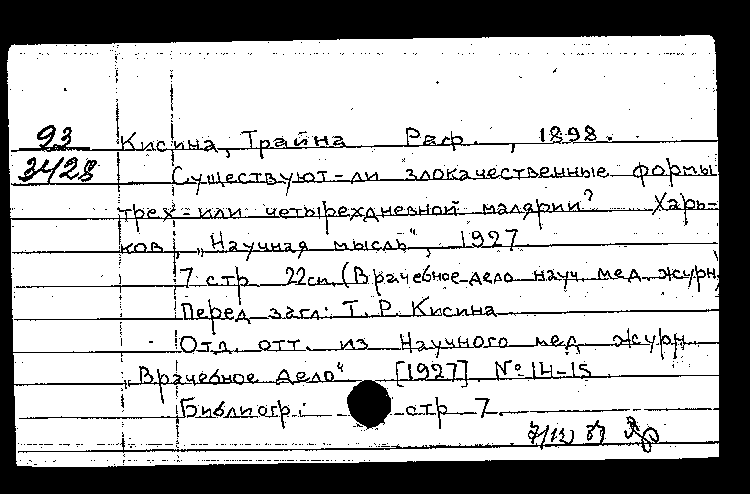 93 Кисина, Трайна Раф. , 1898.
3428 Существуют-ли злокачественные формы
трех-или четырехдневной малярии? Харь-
ков, „Научная мысль“, 1927
7 стр 22см. (Врачебное дело науч. мед. журн)
Перед загл: Т. Р. Кисина
Отд. отт. из Научного мед журн.
„Врачебное дело“ [1927] № 14-15
Библиогр: стр 7.